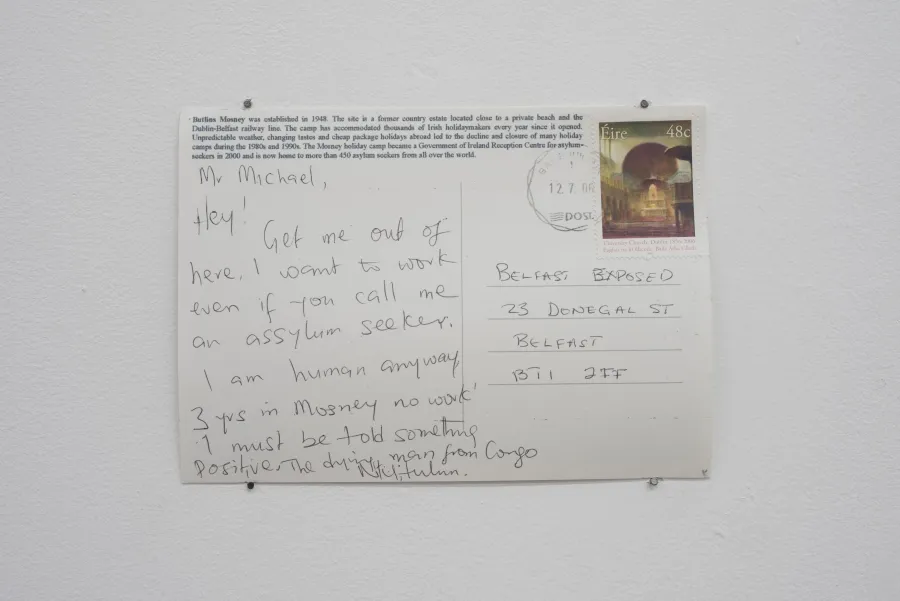 Butlins Mosney was established in 1948. The site is a former country estate located close to a private beach and the
Dublin-Belfast railway line. The camp has accommodated thousands of Irish holidaymakers every year since it opened.
Unpredictable weather, changing tastes and cheap package holidays abroad led to the decline and closure of many holiday
camps during the 1980s and 1990s. The Mosney holiday camp became a Government of Ireland Reception Centre for asylum-
seekers in 2000 and is now home to more than 450 asylum seekers from all over the world.
Mr Michael,
Hey!
Get me out of
here. I want to work
even if you call me
an assylum seeker.
I am human anyway,
3 yrs in Mosney no work
I must be told something
positive. The dying man from Congo
Éire 48c
12.7.06
POST
BELFAST EXPOSED
23 DONEGAL ST
BELFAST
BT1 2FF